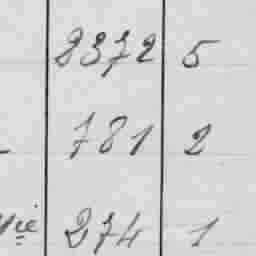 8372 5
781 2
274 1